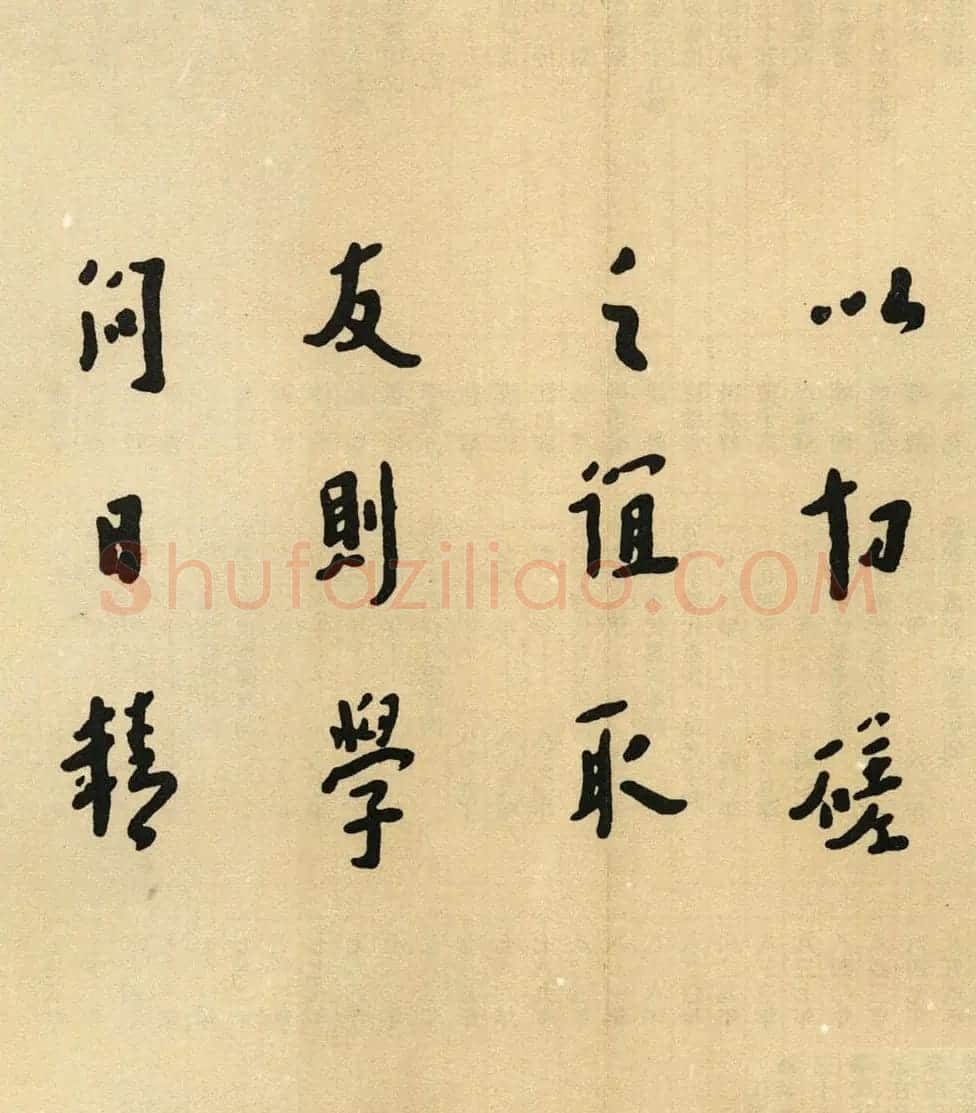 以切磋
之誼取
友則學
問日精
Shufaziliao.COM